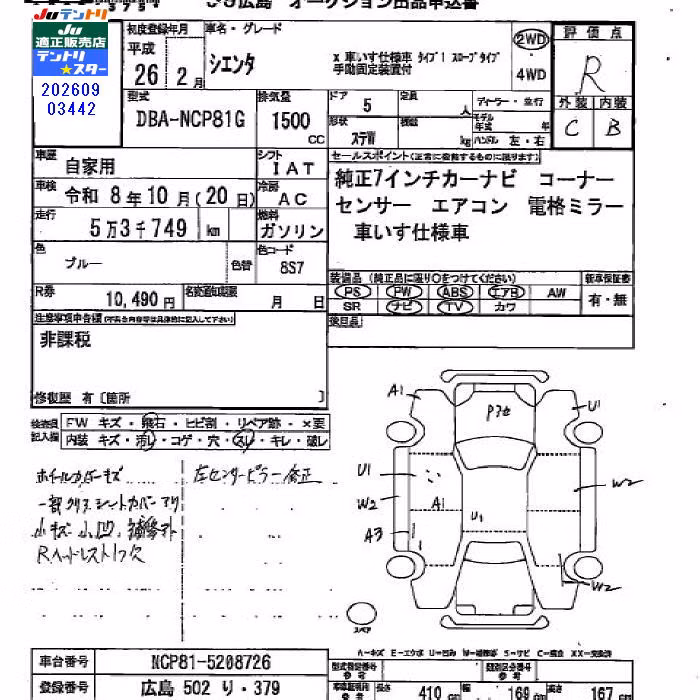 JU広島 オークション出品申込書
JUテントリ
JU
適正販売店
テントリ
★スター
202609
03442
初度登録年月
平成
26 年 2 月
車名・グレード
シエンタ
X 車いす仕様車 タイプ1 スロープタイプ
手動固定装置付
2WD
4WD
評価点
R
外装 内装
C B
型式
DBA-NCP81G
排気量
1500
CC
ドア
5
定員
人
形状
ステW
積載
kg
ディーラー・並行
モデル年式 年
ハンドル 左・右
車歴
自家用
シフト
IAT
セールスポイント(正常に作動するものに限ります)
純正7インチカーナビ コーナー
センサー エアコン 電格ミラー
車いす仕様車
車検
令和 8 年 10 月( 20 日)
冷房
AC
走行
5 万 3 千 749 km
燃料
ガソリン
色
ブルー
色替
色コード
8S7
装備品(純正品に限り○をつけてください)
新車保証書
PS PW ABS エアB AW
有・無
SR ナビ TV カワ
後日品
R券
10,490 円
名変通知期限
月 日
注意事項申告欄
非課税
修復歴 有〔箇所 〕
検査員
記入欄
FW キズ・飛石・ヒビ割・リペア跡・×要
内装 キズ・汚レ・コゲ・穴・スレ・キレ・破レ
ホイールカバーキズ
一部クリア、シートカバーアリ
小キズ 小凹
Rヘッドレスト1ツ欠
左センターピラー修正
A1
U1
P3c
U1
W2
A1
U1
A3
W2
W2
スペア
A-キズ E-エクボ U-凹み W-補修跡 S-サビ C-腐食 XX-交換済
車台番号
NCP81-5208726
登録番号
広島 502 り・379
型式指定番号
参考
類別区分番号
参考
長さ
410
幅
169
高さ
167